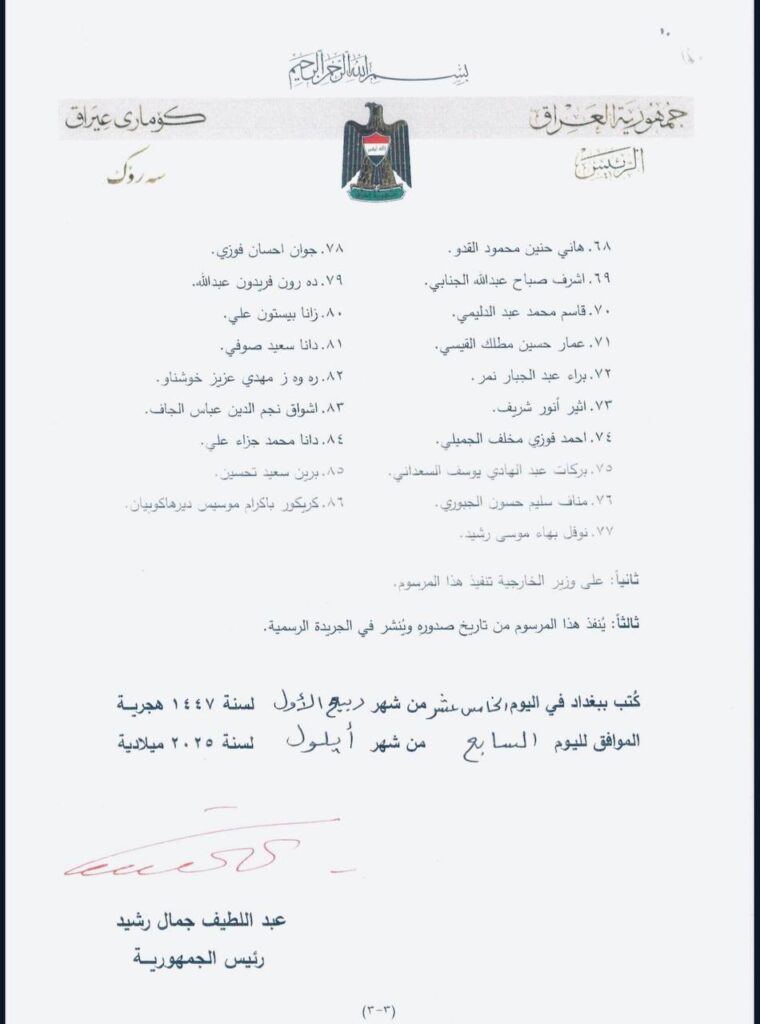 ١٠
بسم الله الرحمن الرحيم
جمهورية العراق
الرئيس
كۆماری عیراق
سه رۆك
الله أكبر
٦٨. هاني حنين محمود القدو.
٦٩. اشرف صباح عبدالله الجنابي.
٧٠. قاسم محمد عبد الدليمي.
٧١. عمار حسين مطلك القيسي.
٧٢. براء عبد الجبار نمر.
٧٣. اثير أنور شريف.
٧٤. احمد فوزي مخلف الجميلي.
٧٥. بركات عبد الهادي يوسف السعداني.
٧٦. مناف سليم حسون الجبوري.
٧٧. نوفل بهاء موسى رشيد.
٧٨. جوان احسان فوزي.
٧٩. ده رون فريدون عبدالله.
٨٠. زانا بيستون علي.
٨١. دانا سعيد صوفي.
٨٢. ره وه ز مهدي عزيز خوشناو.
٨٣. اشواق نجم الدين عباس الجاف.
٨٤. دانا محمد جزاء علي.
٨٥. برين سعيد تحسين.
٨٦. كريكور باكرام موسيس ديرهاكوبيان.
ثانياً: على وزير الخارجية تنفيذ هذا المرسوم.
ثالثاً: يُنفذ هذا المرسوم من تاريخ صدوره ويُنشر في الجريدة الرسمية.
كُتب ببغداد في اليوم الخامس عشر من شهر ربيع الأول لسنة ١٤٤٧ هجريـة
الموافق لليوم السابع من شهر أيلول لسنة ٢٠٢٥ ميلادية
عبد اللطيف جمال رشيد
رئيس الجمهوريـة
(٣-٣)